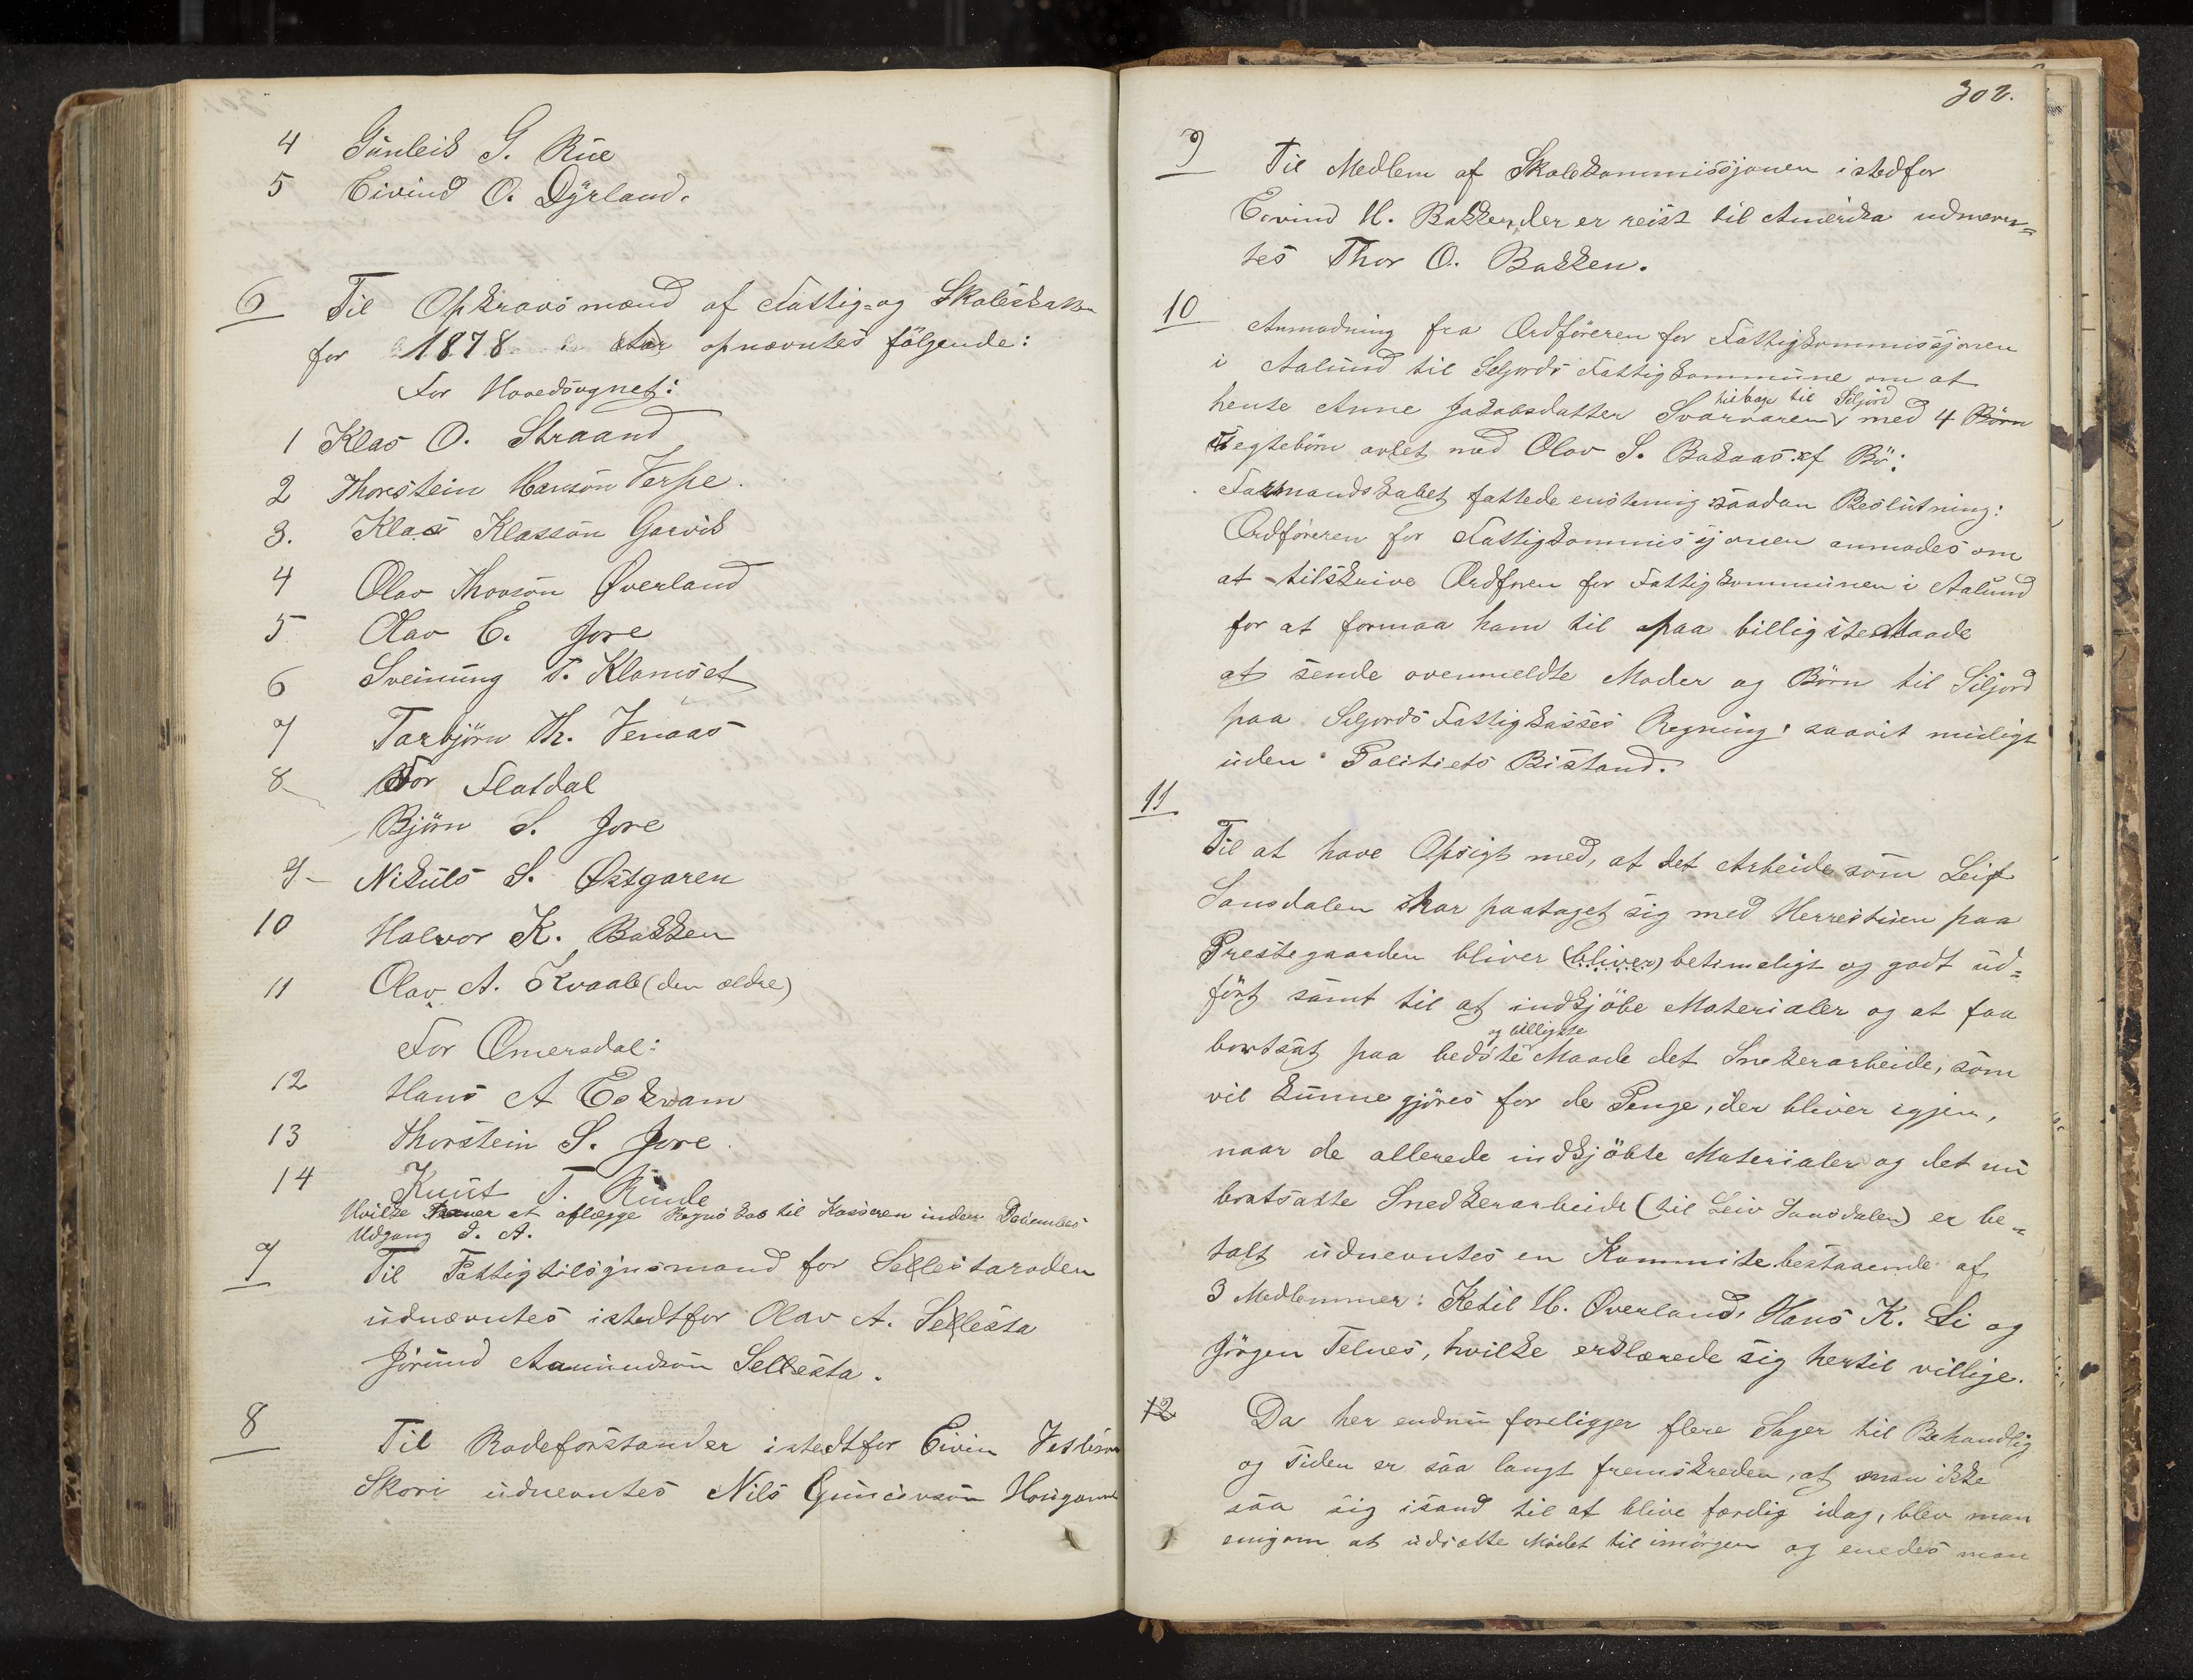 4 Günleik G. Rüe
5 Eivind O. Dÿrland.
6 Til Opkravsmænd af Fattig- og Skoleskatten
for 1878 opnævntes fölgende:
For Hovedsognet:
1 Klas O. Straand
2 Thorstein Hansön Verpe.
3. Klas Klassön Garvik
4 Olav Thovsön Øverland
5 Olav E. Jore
6 Sveinüng T. Klomset
7 Tarbjörn Th. Venaas
8 For Flatdal
Björn S. Jore
9 - Niküls S. Østgaren
10 Halvor K. Bakken
11 Olav A. Kvaale (den ældre)
For Omersdal:
12 Hans A Eekvam
13 Thorstein S. Jore.
14 Knüt T. Rinde
Hvilke haver at aflægge Regnskab til Kasseren inden Desembes
Udgang d. A.
7 Til Fattigtilsynsmand for Sellestaroden
üdnævntes istedtfor Olav A. Sellesta
Jöründ Aamündsön Sellesta.
8 Til Rodeforstander istedtfor Eivin
Skori üdnevntes Nils
302.
9 Til Medlem af Skolekommissjonen istedfor
Eivind H. Bakken, der er reist til Amerika udnevn=
tes Thor O. Bakken.
10 Anmodning fra Ordföreren for Fattigkommissjonen
i Aalünd til Seljords Fattigkommüne om at
hente Anne Jakobsdatter Svarvaren tilbage til Siljord med 4 Börn
Ægtebörn avlet med Olav S. Bakaas af Bö:
Formandskabet fattede enstemig saadan Beslütning:
Ordföreren for Fattigkommissjonen anmodes om
at tilskrive Ordfören for Fattigkommünen i Aalünd
for at formaa ham til paa billigste Maade
at sende ovenmeldte Moder og Börn til Siljord
paa Seljords Fattigkasses Regning, saavit müligt
üden Politiets Bistand.
11
Til at have Opsigt med, at det Arbeide som Leif
Sansdalen har paataget sig med Herrestüen paa
Prestegaarden bliver (bliver) betimeligt og godt üd=
fört samt til at indkjöbe Materialer og at faa
bortsat paa bedste og billigste Maade det Snekerarbeide, som
vil künne gjöres for de Penge, der bliver igjen,
naar de allerede indkjöbte Materialer og det nü
bortsatte Snedkerarbeide (til Leiv Sansdalen) er be=
talt üdnevntes en Kommite bestaaende af
3 Medlemmer: Ketil H. Øverland, Hans K. Li og
Jörgen Telnes, hvilke erklærede sig hertil villige.
12 Da her endnü foreligger flere Sager til Behandlig
og Tiden er saa langt fremskreden, at man ikke
saa sig istand til at blive færdig idag, blev man
enig om at üdsætte Mödet til imorgen og enedes man